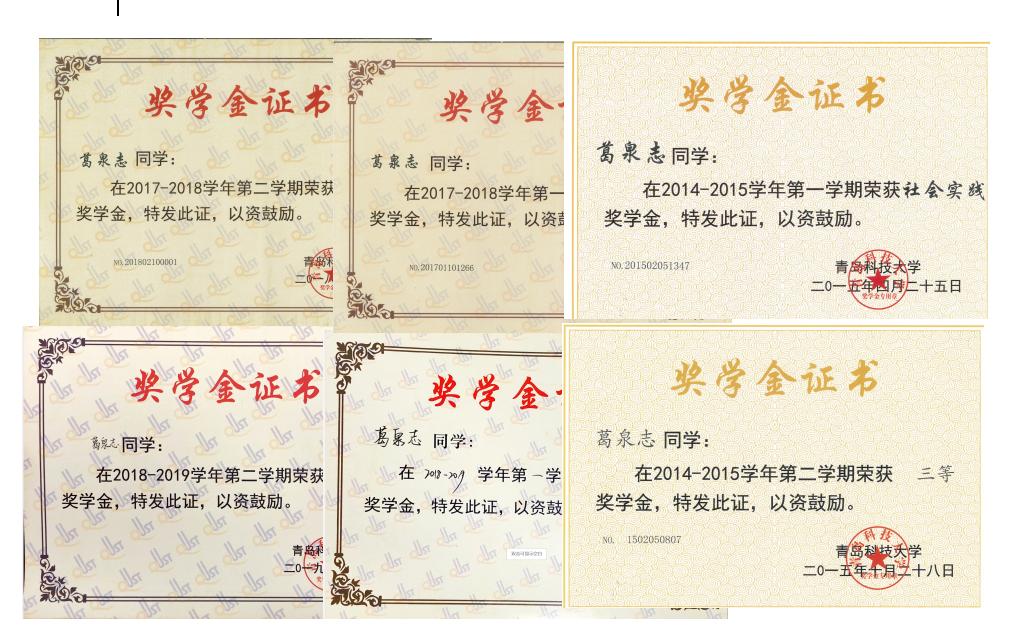 奖学金证书
葛泉志 同学：
在2017-2018学年第二学期荣获
奖学金，特发此证，以资鼓励。
NO.201802100001
青岛科
二〇一八
奖学金
葛泉志 同学：
在2017-2018学年第一
奖学金，特发此证，以资鼓
NO.201701101266
奖学金证书
葛泉志 同学：
在2014-2015学年第一学期荣获社会实践
奖学金，特发此证，以资鼓励。
NO.201502051347
青岛科技大学
二〇一五年四月二十五日
奖学金专用章
奖学金证书
葛泉志 同学：
在2018-2019学年第二学期荣获
奖学金，特发此证，以资鼓励。
青岛科
二〇一九
奖学金
葛泉志 同学：
在 2018-2019 学年第一学
奖学金，特发此证，以资鼓
双击可隐藏空白
奖学金证书
葛泉志 同学：
在2014-2015学年第二学期荣获 三等
奖学金，特发此证，以资鼓励。
NO. 1502050807
青岛科技大学
二〇一五年十月二十八日
奖学金专用章